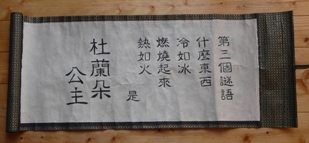 第三個謎語
什麼東西
冷如冰
燃燒起來
熱如火
是
杜蘭朵
公主